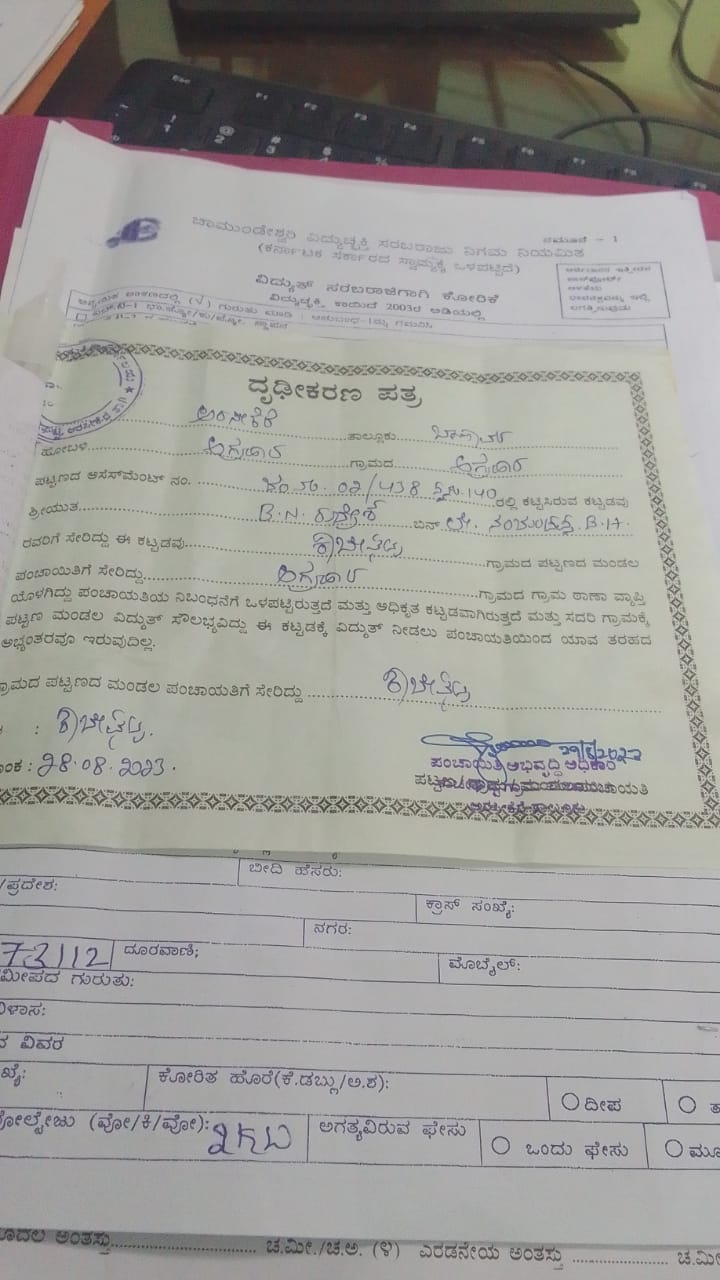 Esc F1 F2 F3 F4 F5 F6 F7 F8
! 1 @ 2 # 3 $ 4 %
ನಮೂನೆ - 1
ಚಾಮುಂಡೇಶ್ವರಿ ವಿದ್ಯುಚ್ಛಕ್ತಿ ಸರಬರಾಜು ನಿಗಮ ನಿಯಮಿತ
(ಕರ್ನಾಟಕ ಸರ್ಕಾರದ ಸ್ವಾಮ್ಯಕ್ಕೆ ಒಳಪಟ್ಟಿದೆ)
ವಿದ್ಯುತ್ ಸರಬರಾಜಿಗಾಗಿ ಕೋರಿಕೆ
ವಿದ್ಯುಚ್ಛಕ್ತಿ ಕಾಯಿದೆ 2003ರ ಅಡಿಯಲ್ಲಿ
ದೃಢೀಕರಣ ಪತ್ರ
ಅರಸೀಕೆರೆ ತಾಲ್ಲೂಕು ಬಾಣಾವರ
ಹೋಬಳಿ ಅಗ್ರಹಾರ ಗ್ರಾಮದ ಅಗ್ರಹಾರ
ಪಟ್ಟಣದ ಆಸೆಸ್‌ಮೆಂಟ್ ನಂ. 02/438 140 ರಲ್ಲಿ ಕಟ್ಟಿಸಿರುವ ಕಟ್ಟಡವು
ಶ್ರೀಯುತ B.N. ರುದ್ರೇಶ್ ಬಿನ್ ಲೇ. ನಂಜುಂಡಪ್ಪ B.H.
ರವರಿಗೆ ಸೇರಿದ್ದು ಈ ಕಟ್ಟಡವು ಗ್ರಾಮದ ಪಟ್ಟಣದ ಮಂಡಲ
ಪಂಚಾಯಿತಿಗೆ ಸೇರಿದ್ದು ಅಗ್ರಹಾರ ಗ್ರಾಮದ ಗ್ರಾಮ ಠಾಣಾ ವ್ಯಾಪ್ತಿ
ಯೊಳಗಿದ್ದು ಪಂಚಾಯತಿಯ ನಿಬಂಧನೆಗೆ ಒಳಪಟ್ಟಿರುತ್ತದೆ ಮತ್ತು ಅಧಿಕೃತ ಕಟ್ಟಡವಾಗಿರುತ್ತದೆ ಮತ್ತು ಸದರಿ ಗ್ರಾಮಕ್ಕೆ
ಪಟ್ಟಣ ಮಂಡಲ ವಿದ್ಯುತ್ ಸೌಲಭ್ಯವಿದ್ದು ಈ ಕಟ್ಟಡಕ್ಕೆ ವಿದ್ಯುತ್ ನೀಡಲು ಪಂಚಾಯಿತಿಯಿಂದ ಯಾವ ತರಹದ
ಅಭ್ಯಂತರವೂ ಇರುವುದಿಲ್ಲ.
ಗ್ರಾಮದ ಪಟ್ಟಣದ ಮಂಡಲ ಪಂಚಾಯತಿಗೆ ಸೇರಿದ್ದು
ಂಕ : 28.08.2023.
ಪಂಚಾಯಿತಿ ಅಭಿವೃದ್ಧಿ ಅಧಿಕಾರಿ
ಬೀದಿ ಹೆಸರು:
/ಪ್ರದೇಶ:
ಕ್ರಾಸ್ ಸಂಖ್ಯೆ:
ನಗರ:
73112 ದೂರವಾಣಿ;
ಮೊಬೈಲ್:
ಮೀಪದ ಗುರುತು:
ಿಳಾಸ:
ದ ವಿವರ
ಖ್ಯೆ: ಕೋರಿತ ಹೊರೆ(ಕೆ.ಡಬ್ಲು/ಅ.ಶ): ದೀಪ
ೋಲ್ಟೇಜು (ವೋ/ಕಿ/ವೋ): ಅಗತ್ಯವಿರುವ ಫೇಸು ಒಂದು ಫೇಸು ಮೂ
ೂದಲ ಅಂತಸ್ತು ಚ.ಮೀ./ಚ.ಅ. (೪) ಎರಡನೇಯ ಅಂತಸ್ತು ಚ.ಮೀ